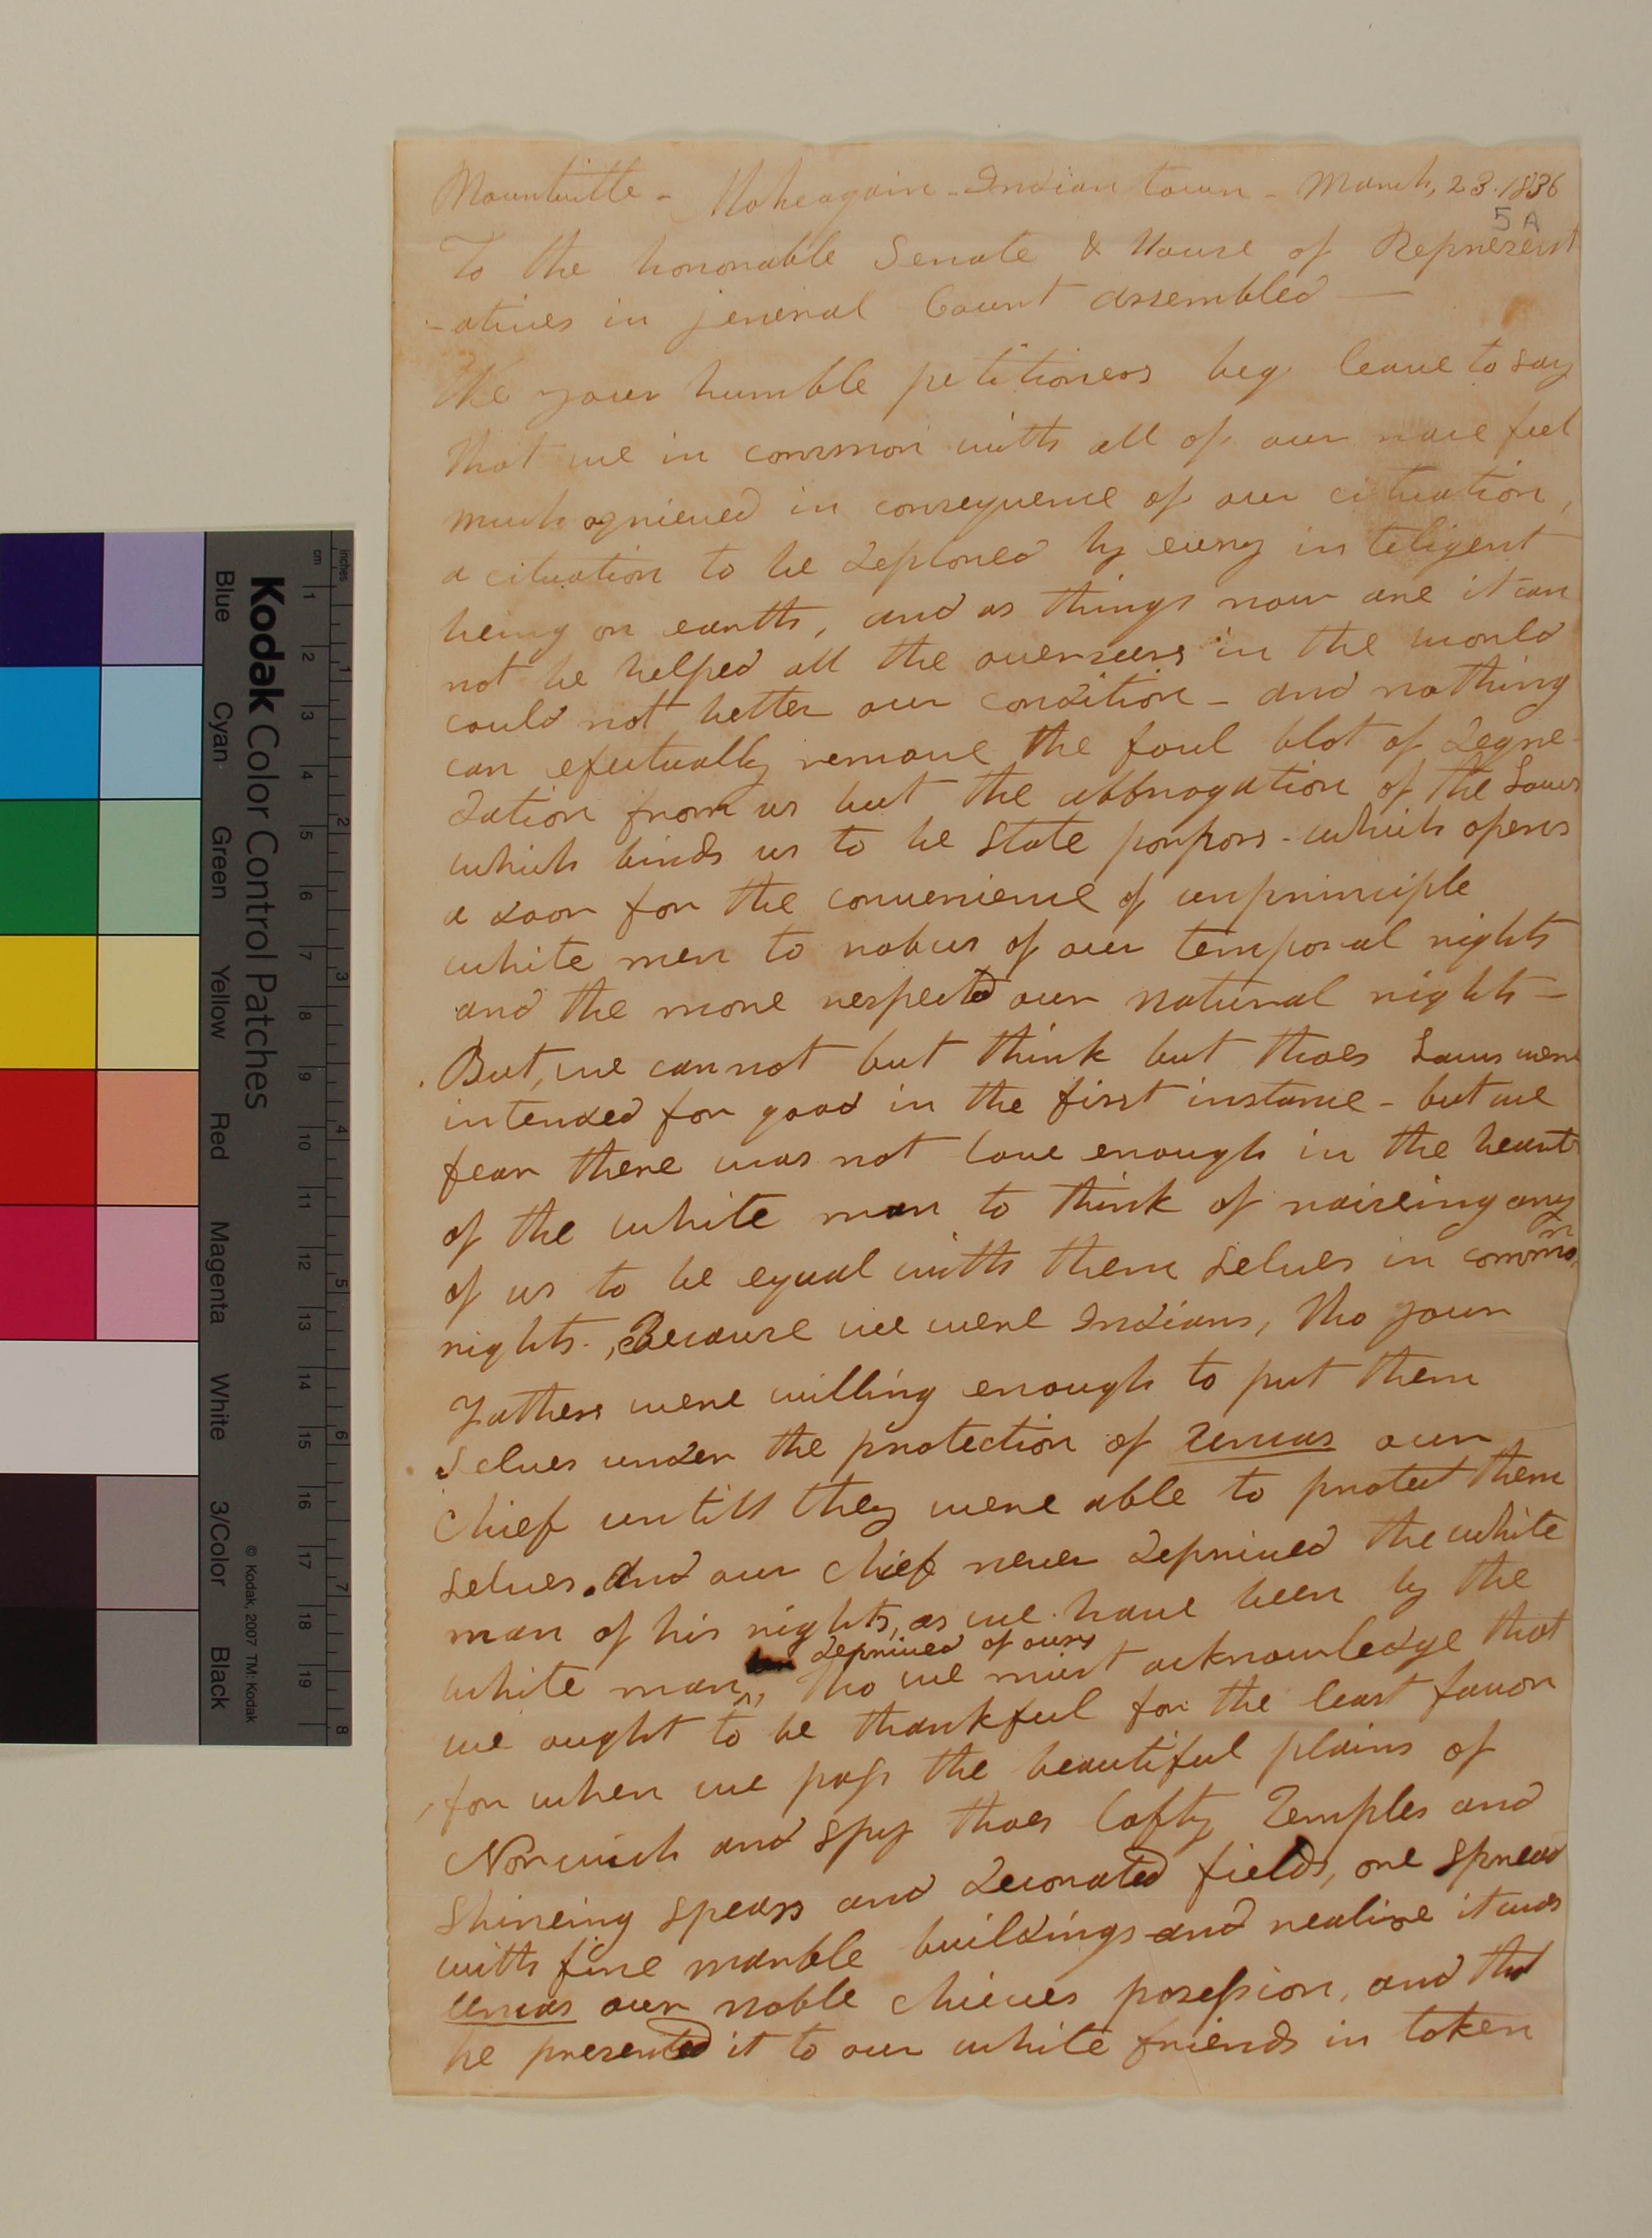 Mountville - Moheagain - Indian town - March, 23. 1836
5 A
To the honorable Senate & House of Represent
-atives in jeneral Court assembled —
We your humble petitioners beg leave to say
that we in common with all of our race feel
much agrieved in consequence of our cituation,
a cituation to be deplored by every inteligent
being on earth, and as things now are it can
not be helped all the overseers in the world
could not better our condition - and nothing
can efectually remove the foul blot of degre-
dation from us but the abbrogation of the Laws
which binds us to be State porpors - which opens
a door for the convenience of unprinciple
white men to rob us of our temporal rights
and the more respected our natural rights —
But, we cannot but think but thoes Laws were
intended for good in the first instance - but we
fear there was not love enough in the heart
of the white man to think of raiseing any
of us to be equal with them selves in common
rights., Because we were Indians, tho your
Fathers were willing enough to put them
selves under the protection of Uncas our
chief untill they were able to protect them
selves. And our chief never deprived the white
man of his rights, as we have been by the
deprived of ours
white man, tho we must acknowledge that
we ought to be thankful for the least favor
, for when we pass the beautiful plains of
Norwich and spy thoes lofty Temples and
shineing spears and decorated fields, one spread
with fine marble buildings and realise it was
Uncas our noble chieves posession, and that
he presented it to our white friends in token
inches
cm
1 2 3 4 5 6 7 8 9 10 11 12 13 14 15 16 17 18 19
1 2 3 4 5 6 7 8
Kodak Color Control Patches
© Kodak, 2007 TM: Kodak
Blue Cyan Green Yellow Red Magenta White 3/Color Black